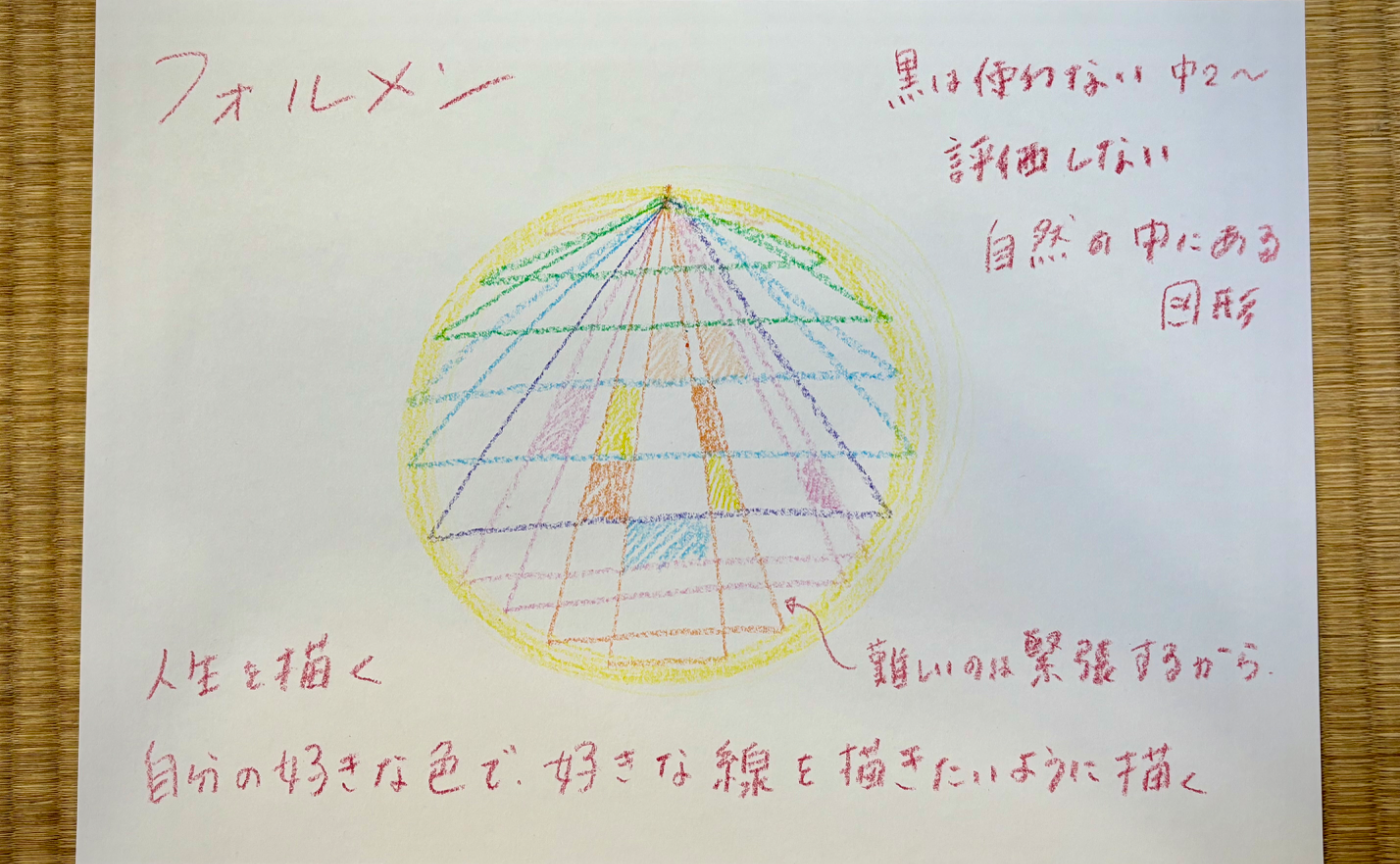 フォルメン
黒は使わない 中2〜
評価しない
自然の中にある
図形
人生を描く
難しいのは緊張するから.
自分の好きな色で、好きな線を描きたいように描く